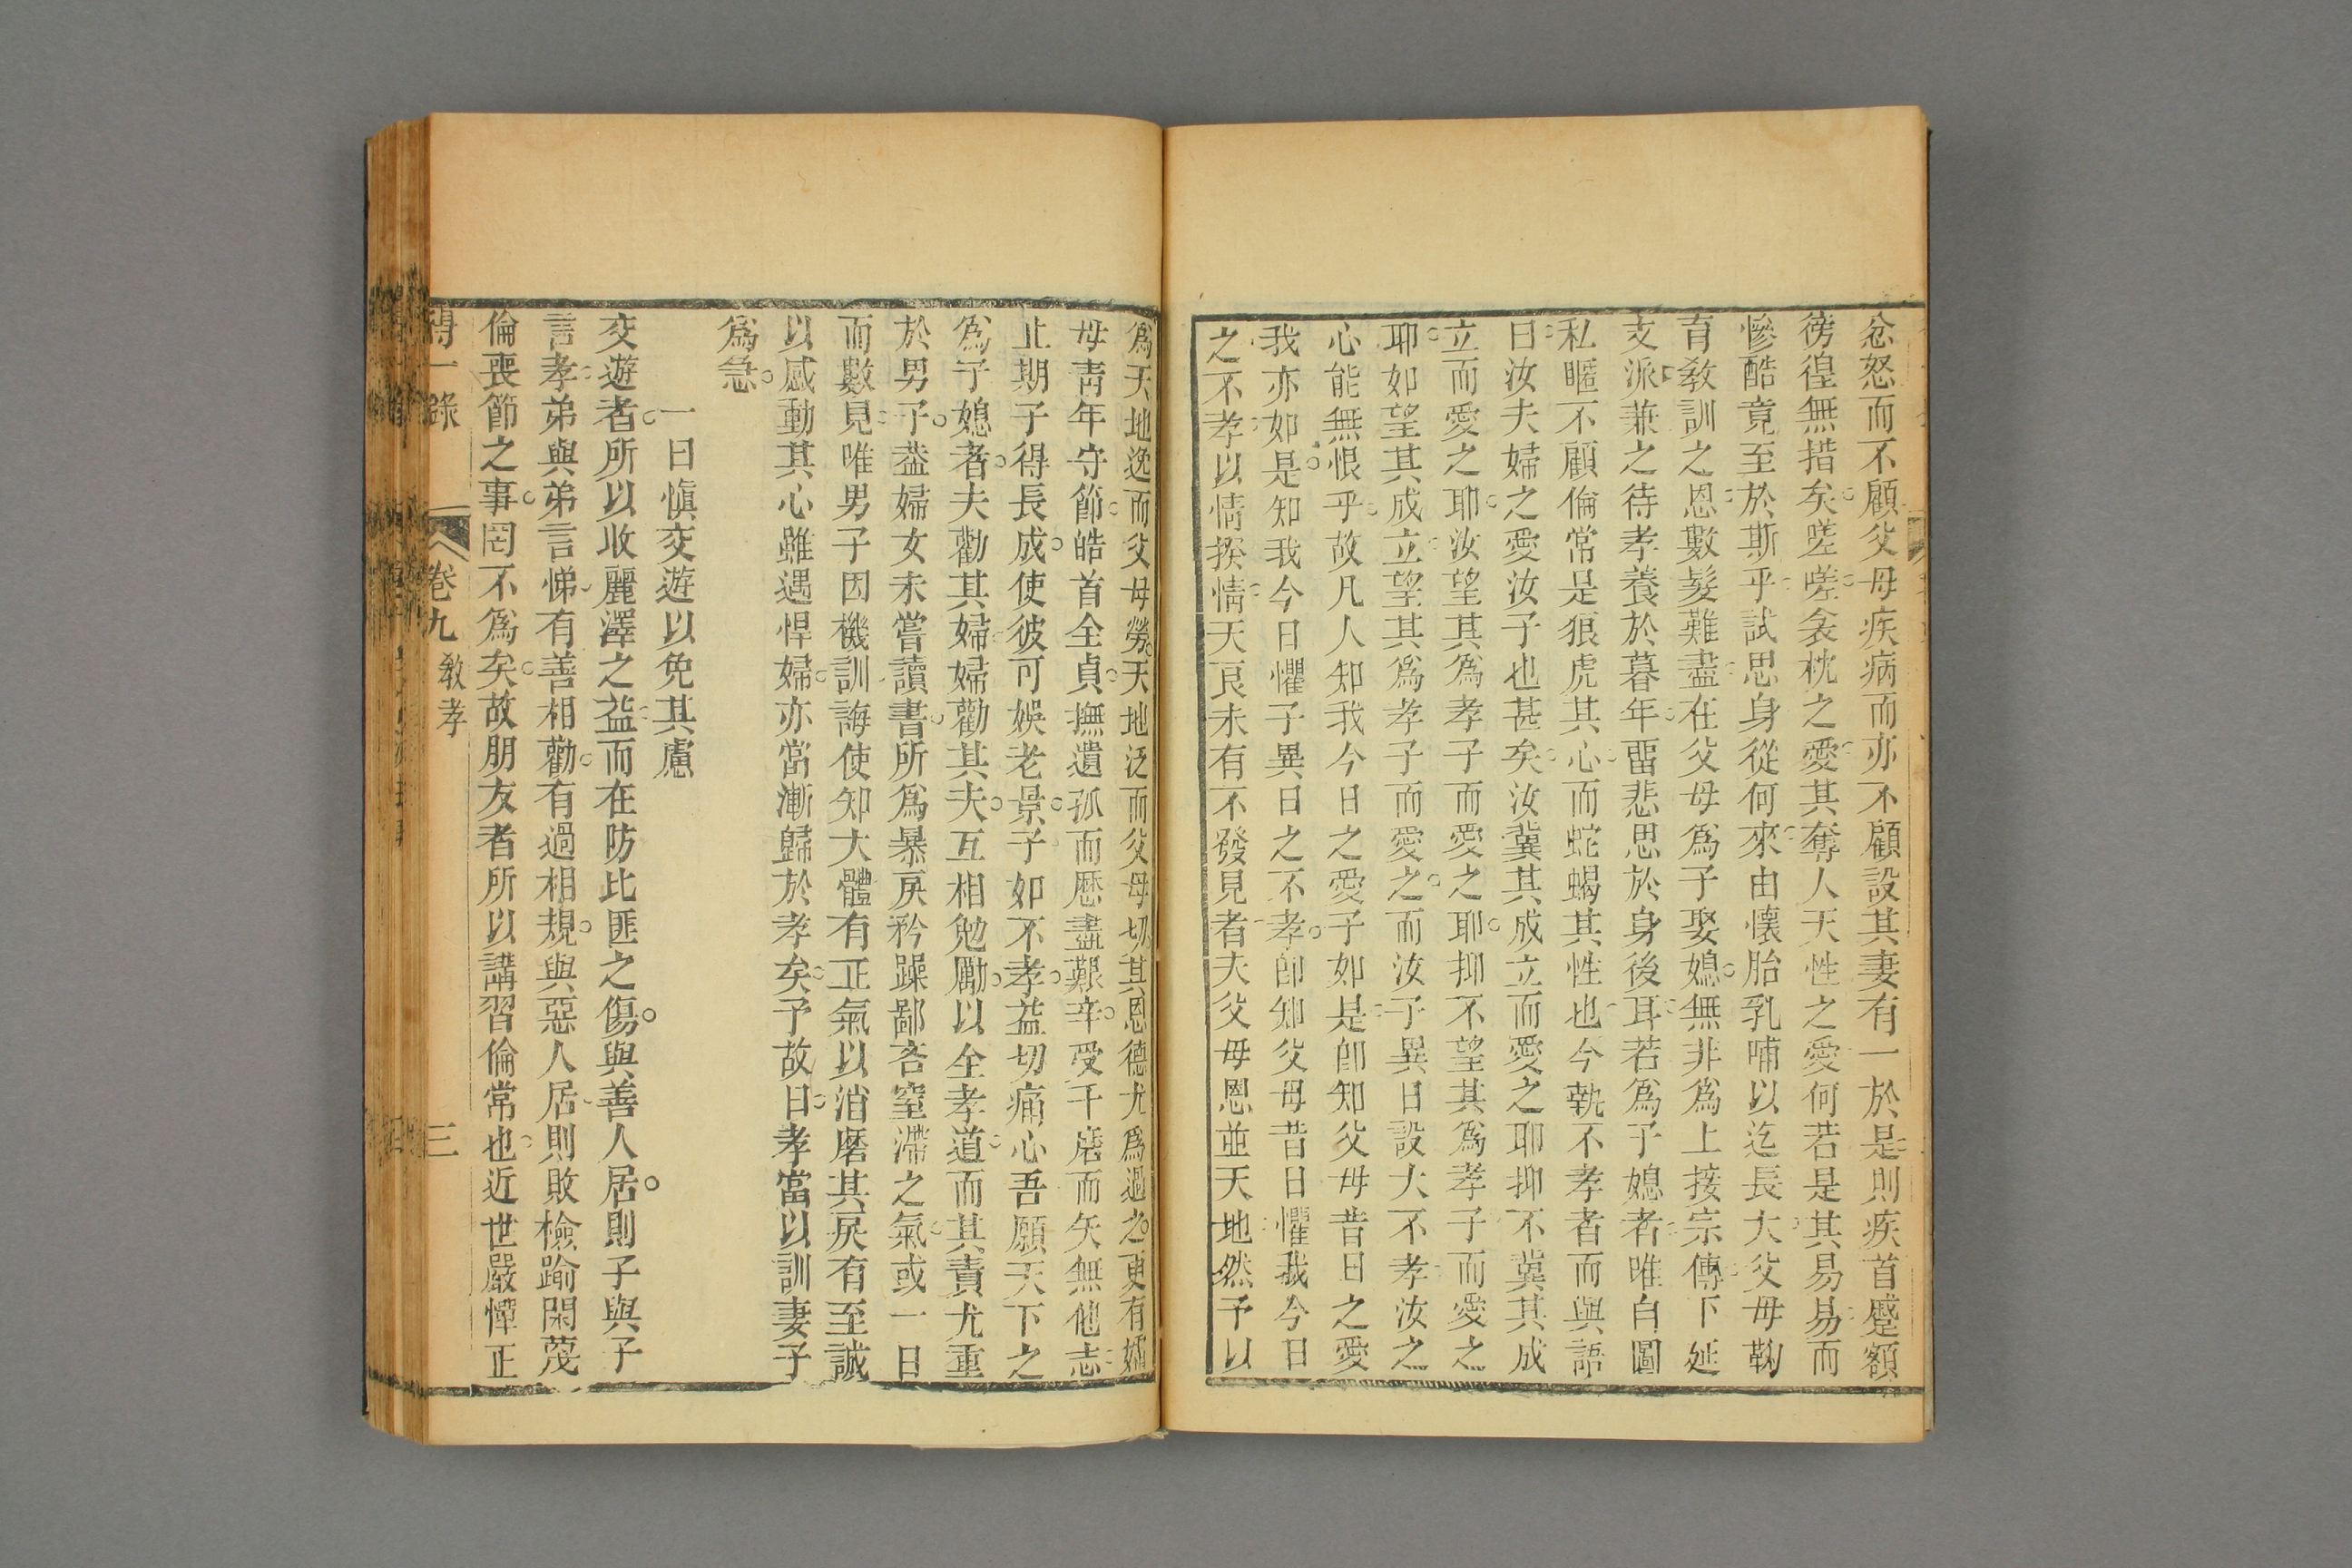 忿怒而不顧父母疾病而亦不顧設其妻有一於是則疾首蹙額
徬徨無措矣嗟嗟衾枕之愛其奪人天性之愛何若是其易易而
慘酷竟至於斯乎試思身從何來由懷胎乳哺以迄長大父母鞠
育敎訓之恩數髮難盡在父母爲子娶媳無非爲上接宗傳下延
支派兼之待孝養於暮年畱悲思於身後耳若爲子媳者唯自圖
私暱不顧倫常是狼虎其心而蛇蝎其性也今執不孝者而與語
曰汝夫婦之愛汝子也甚矣汝冀其成立而愛之耶抑不冀其成
立而愛之耶汝望其爲孝子而愛之耶抑不望其爲孝子而愛之
耶如望其成立望其爲孝子而愛之而汝子異日設大不孝汝之
心能無恨乎故凡人知我今日之愛子如是卽知父母昔日之愛
我亦如是知我今日懼子異日之不孝卽知父母昔日懼我今日
之不孝以情揆情天良未有不發見者夫父母恩並天地然予以
爲天地逸而父母勞天地泛而父母切其恩德尤爲過之更有孀
母靑年守節皓首全貞撫遺孤而歷盡艱辛受千磨而矢無他志
止期子得長成使彼可娛老景子如不孝益切痛心吾願天下之
爲子媳者夫勸其婦婦勸其夫互相勉勵以全孝道而其責尤重
於男子葢婦女未嘗讀書所爲暴戾矜躁鄙吝窒滯之氣或一日
而數見唯男子因機訓誨使知大體有正氣以消磨其戾有至誠
以感動其心雖遇悍婦亦當漸歸於孝矣予故曰孝當以訓妻子
爲急
一曰愼交遊以免其慮
交遊者所以收麗澤之益而在防比匪之傷與善人居則子與子
言孝弟與弟言悌有善相勸有過相規與惡人居則敗檢踰閑蔑
倫喪節之事罔不爲矣故朋友者所以講習倫常也近世嚴憚正
得一錄 卷九 敎孝 三